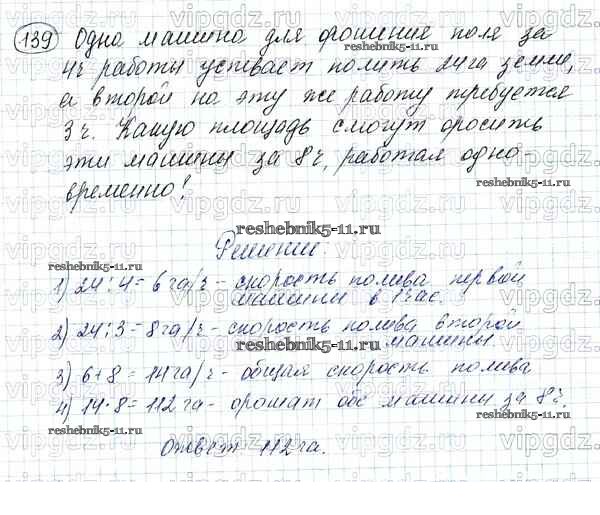 139 Одна машина для орошения поля за
4ч работы успевает полить 24га земли,
а второй на эту же работу требуется
3ч. Какую площадь смогут оросить
эти машины за 8ч, работая одно-
временно?
Решение.
1) 24:4=6га/ч - скорость полива первой
машины в 1 час.
2) 24:3=8га/ч - скорость полива второй
машины.
3) 6+8=14га/ч - общая скорость полива
4) 14·8=112га - орошат обе машины за 8ч.
Ответ 112га.
vipgdz.
reshebnik5-11.ru